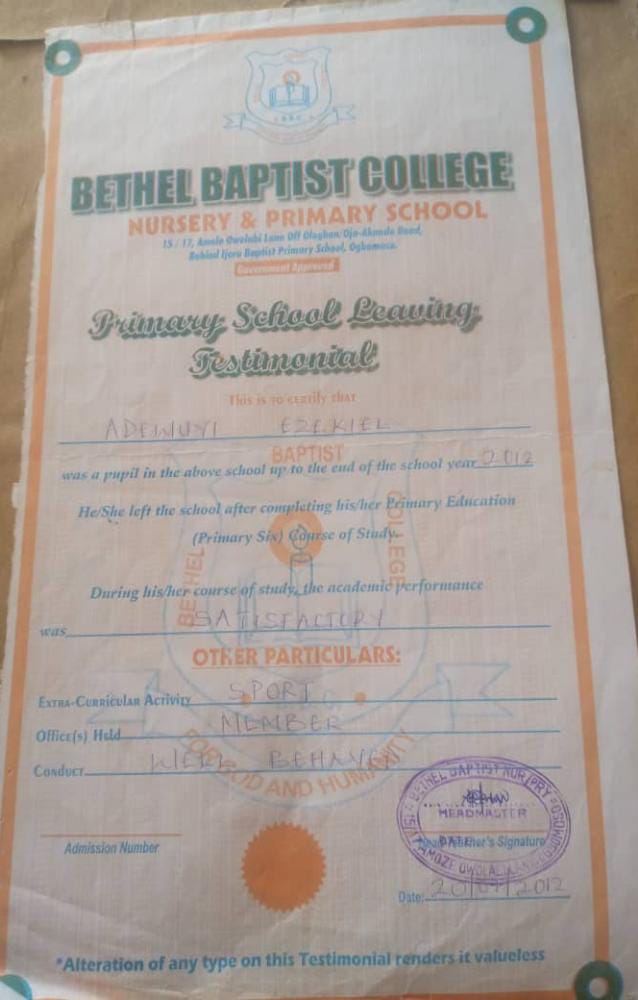 BETHEL BAPTIST COLLEGE
NURSERY & PRIMARY SCHOOL
15 / 17, Amole Owolabi Lane Off Ologbon/Oja-Akande Road,
Behind Ijeru Baptist Primary School, Ogbomoso.
Government Approved
Primary School Leaving
Testimonial
This is to certify that
ADEWUYI EZEKIEL
BAPTIST
was a pupil in the above school up to the end of the school year 2012
He/She left the school after completing his/her Primary Education
(Primary Six) Course of Study.
BETHEL
COLLEGE
During his/her course of study, the academic performance
was SATISFACTORY
OTHER PARTICULARS:
Extra-Curricular Activity SPORT
Office(s) Held MEMBER
Conduct WELL BEHAVED
FOR GOD AND HUMANITY
BETHEL BAPTIST NUR/PRY
HEADMASTER
DATE
Admission Number
Head Teacher's Signature
Date: 20/07/2012
*Alteration of any type on this Testimonial renders it valueless